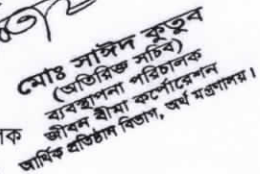 মোঃ সাঈদ কুতুব
(অতিরিক্ত সচিব)
ব্যবস্থাপনা পরিচালক
জীবন বীমা কর্পোরেশন
আর্থিক প্রতিষ্ঠান বিভাগ, অর্থ মন্ত্রণালয়।